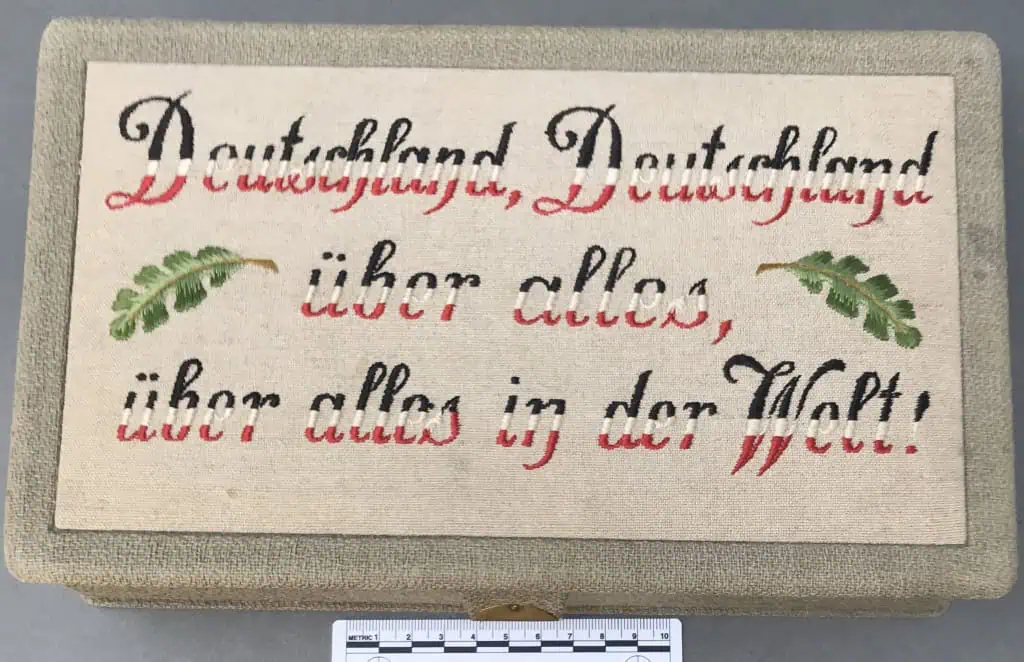 Deutschland, Deutschland
über alles,
über alles in der Welt!
METRIC 1 2 3 4 5 6 7 8 9 10